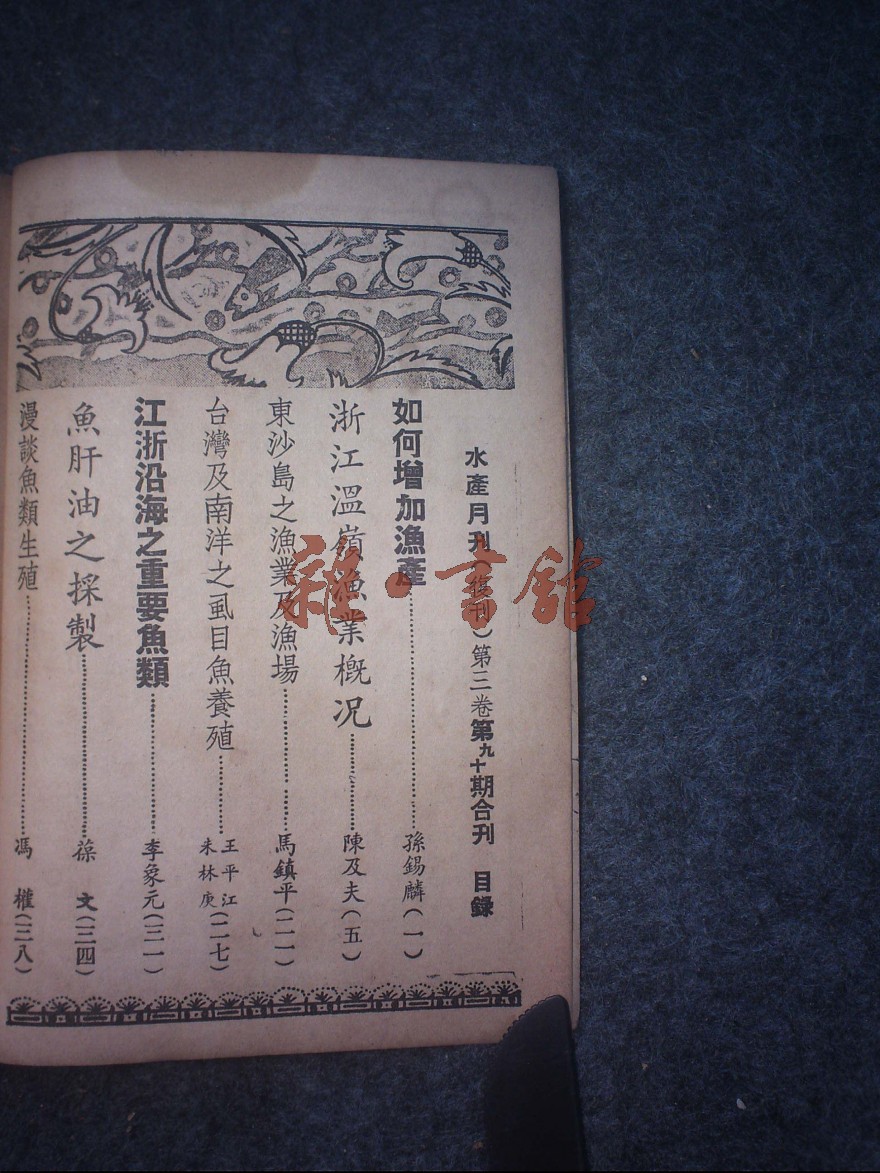 水產月刊（復刊）第三卷第九十期合刊 目錄
如何增加漁產……孫錫麟(一)
浙江溫嶺漁業概况……陳及夫(五)
東沙島之漁業及漁場……馬鎮平(二一)
台灣及南洋之虱目魚養殖……王平江 朱林庚(二七)
江浙沿海之重要魚類……李象元(三一)
魚肝油之採製……葆 文(三四)
漫談魚類生殖……馮 權(三八)
雜·書館